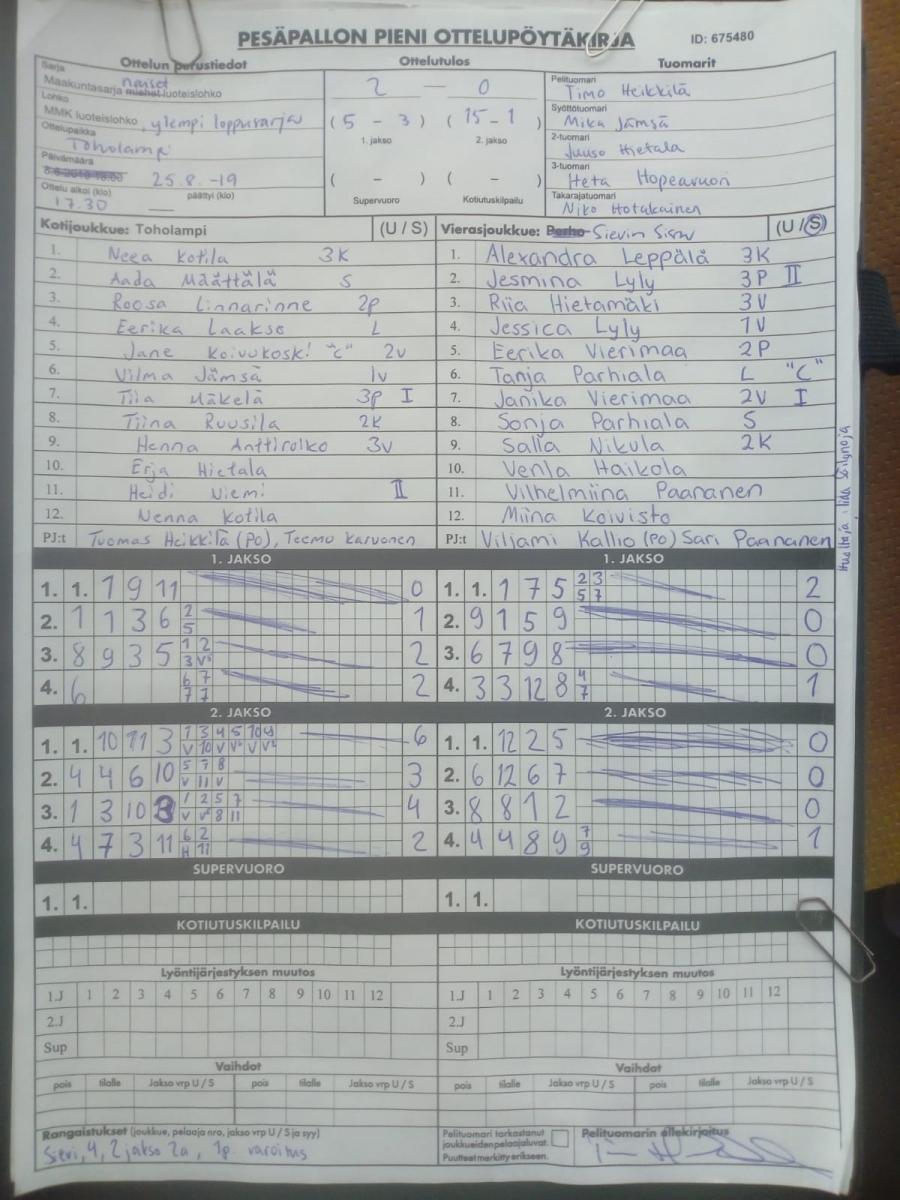 PESÄPALLON PIENI OTTELUPÖYTÄKIRJA ID: 675480
Ottelun perustiedot
Sarja
naiset
Maakuntasarja miehet luoteislohko
Lohko
MMK luoteislohko, ylempi loppusarja
Ottelupaikka
Toholampi
Päivämäärä
25.8.-19
Ottelu alkoi (klo) päättyi (klo)
17.30
Ottelutulos
2 — 0
(5 - 3) (15 - 1)
1. jakso 2. jakso
( - ) ( - )
Supervuoro Kotiutuskilpailu
Tuomarit
Pelituomari
Timo Heikkilä
Syöttötuomari
Mika Jämsä
2-tuomari
Juuso Hietala
3-tuomari
Heta Hopeavuori
Takarajatuomari
Niko Hotakainen
Kotijoukkue: Toholampi (U / S)
1. Neea Kotila 3K
2. Aada Määttälä S
3. Roosa Linnarinne 2p
4. Eerika Laakso L
5. Jane Koivukoski "c" 2v
6. Vilma Jämsä 1v
7. Tiia Mäkelä 3p I
8. Tiina Ruusila 2K
9. Henna Anttiroiko 3v
10. Erja Hietala
11. Heidi Niemi II
12. Nenna Kotila
PJ:t Tuomas Heikkilä (PO), Teemu Karvonen
Vierasjoukkue: Perho Sievin Sisu (U / S)
1. Alexandra Leppälä 3K
2. Jesmina Lyly 3P II
3. Riia Hietamäki 3V
4. Jessica Lyly 1V
5. Eerika Vierimaa 2P
6. Tanja Parhiala L "C"
7. Janika Vierimaa 2V I
8. Sonja Parhiala S
9. Salla Nikula 2K
10. Venla Haikola
11. Vilhelmiina Paananen
12. Miina Koivisto
PJ:t Viljami Kallio (PO) Sari Paananen
1. JAKSO
1. 1. 1 9 11 0
2. 1 1 3 6 2 5 1
3. 8 9 3 5 1 2 3 V 2
4. 6 6 7 7 7 2
1. JAKSO
1. 1. 1 7 5 2 3 5 7 2
2. 9 1 5 9 0
3. 6 7 9 8 0
4. 3 3 12 8 4 7 1
2. JAKSO
1. 1. 10 11 3 1 3 4 5 10 9 V 10 V V V V 6
2. 4 4 6 10 5 7 8 V 11 V 3
3. 1 3 10 3 1 2 5 7 V V 8 11 4
4. 4 7 3 11 6 2 H 11 2
2. JAKSO
1. 1. 12 2 5 0
2. 6 12 6 7 0
3. 8 8 1 2 0
4. 4 4 8 9 7 9 1
SUPERVUORO
1. 1.
SUPERVUORO
1. 1.
KOTIUTUSKILPAILU
KOTIUTUSKILPAILU
Lyöntijärjestyksen muutos
1.J 1 2 3 4 5 6 7 8 9 10 11 12
2.J
Sup
Lyöntijärjestyksen muutos
1.J 1 2 3 4 5 6 7 8 9 10 11 12
2.J
Sup
Vaihdot
pois tilalle Jakso vrp U / S pois tilalle Jakso vrp U / S
Vaihdot
pois tilalle Jakso vrp U / S pois tilalle Jakso vrp U / S
Rangaistukset (joukkue, pelaaja nro, jakso vrp U / S ja syy)
Sievi, 4, 2 jakso 2a, 1p. varoitus
Pelituomari tarkastanut
joukkueiden pelaajaluvat.
Puutteet merkitty erikseen.
Pelituomarin allekirjoitus